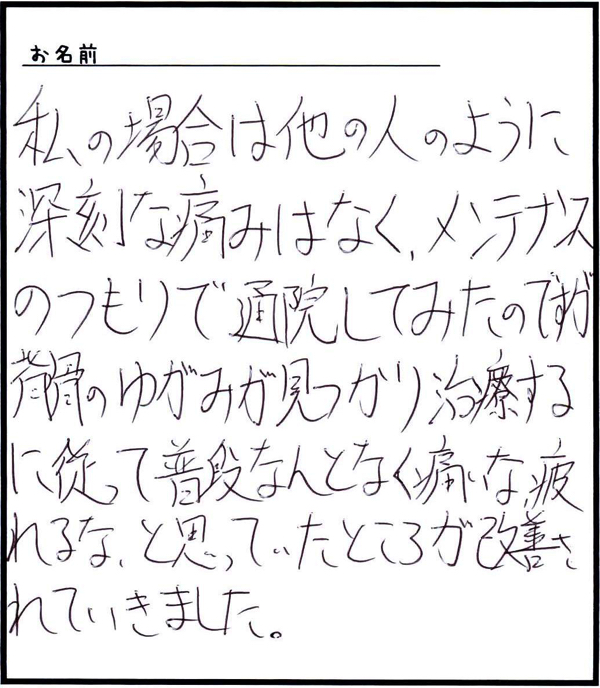 お名前
私の場合は他の人のように
深刻な痛みはなく、メンテナス
のつもりで通院してみたのですが
背骨のゆがみが見つかり治療する
に従って普段なんとなく痛いな、疲
れるな、と思っていたところが改善さ
れていきました。